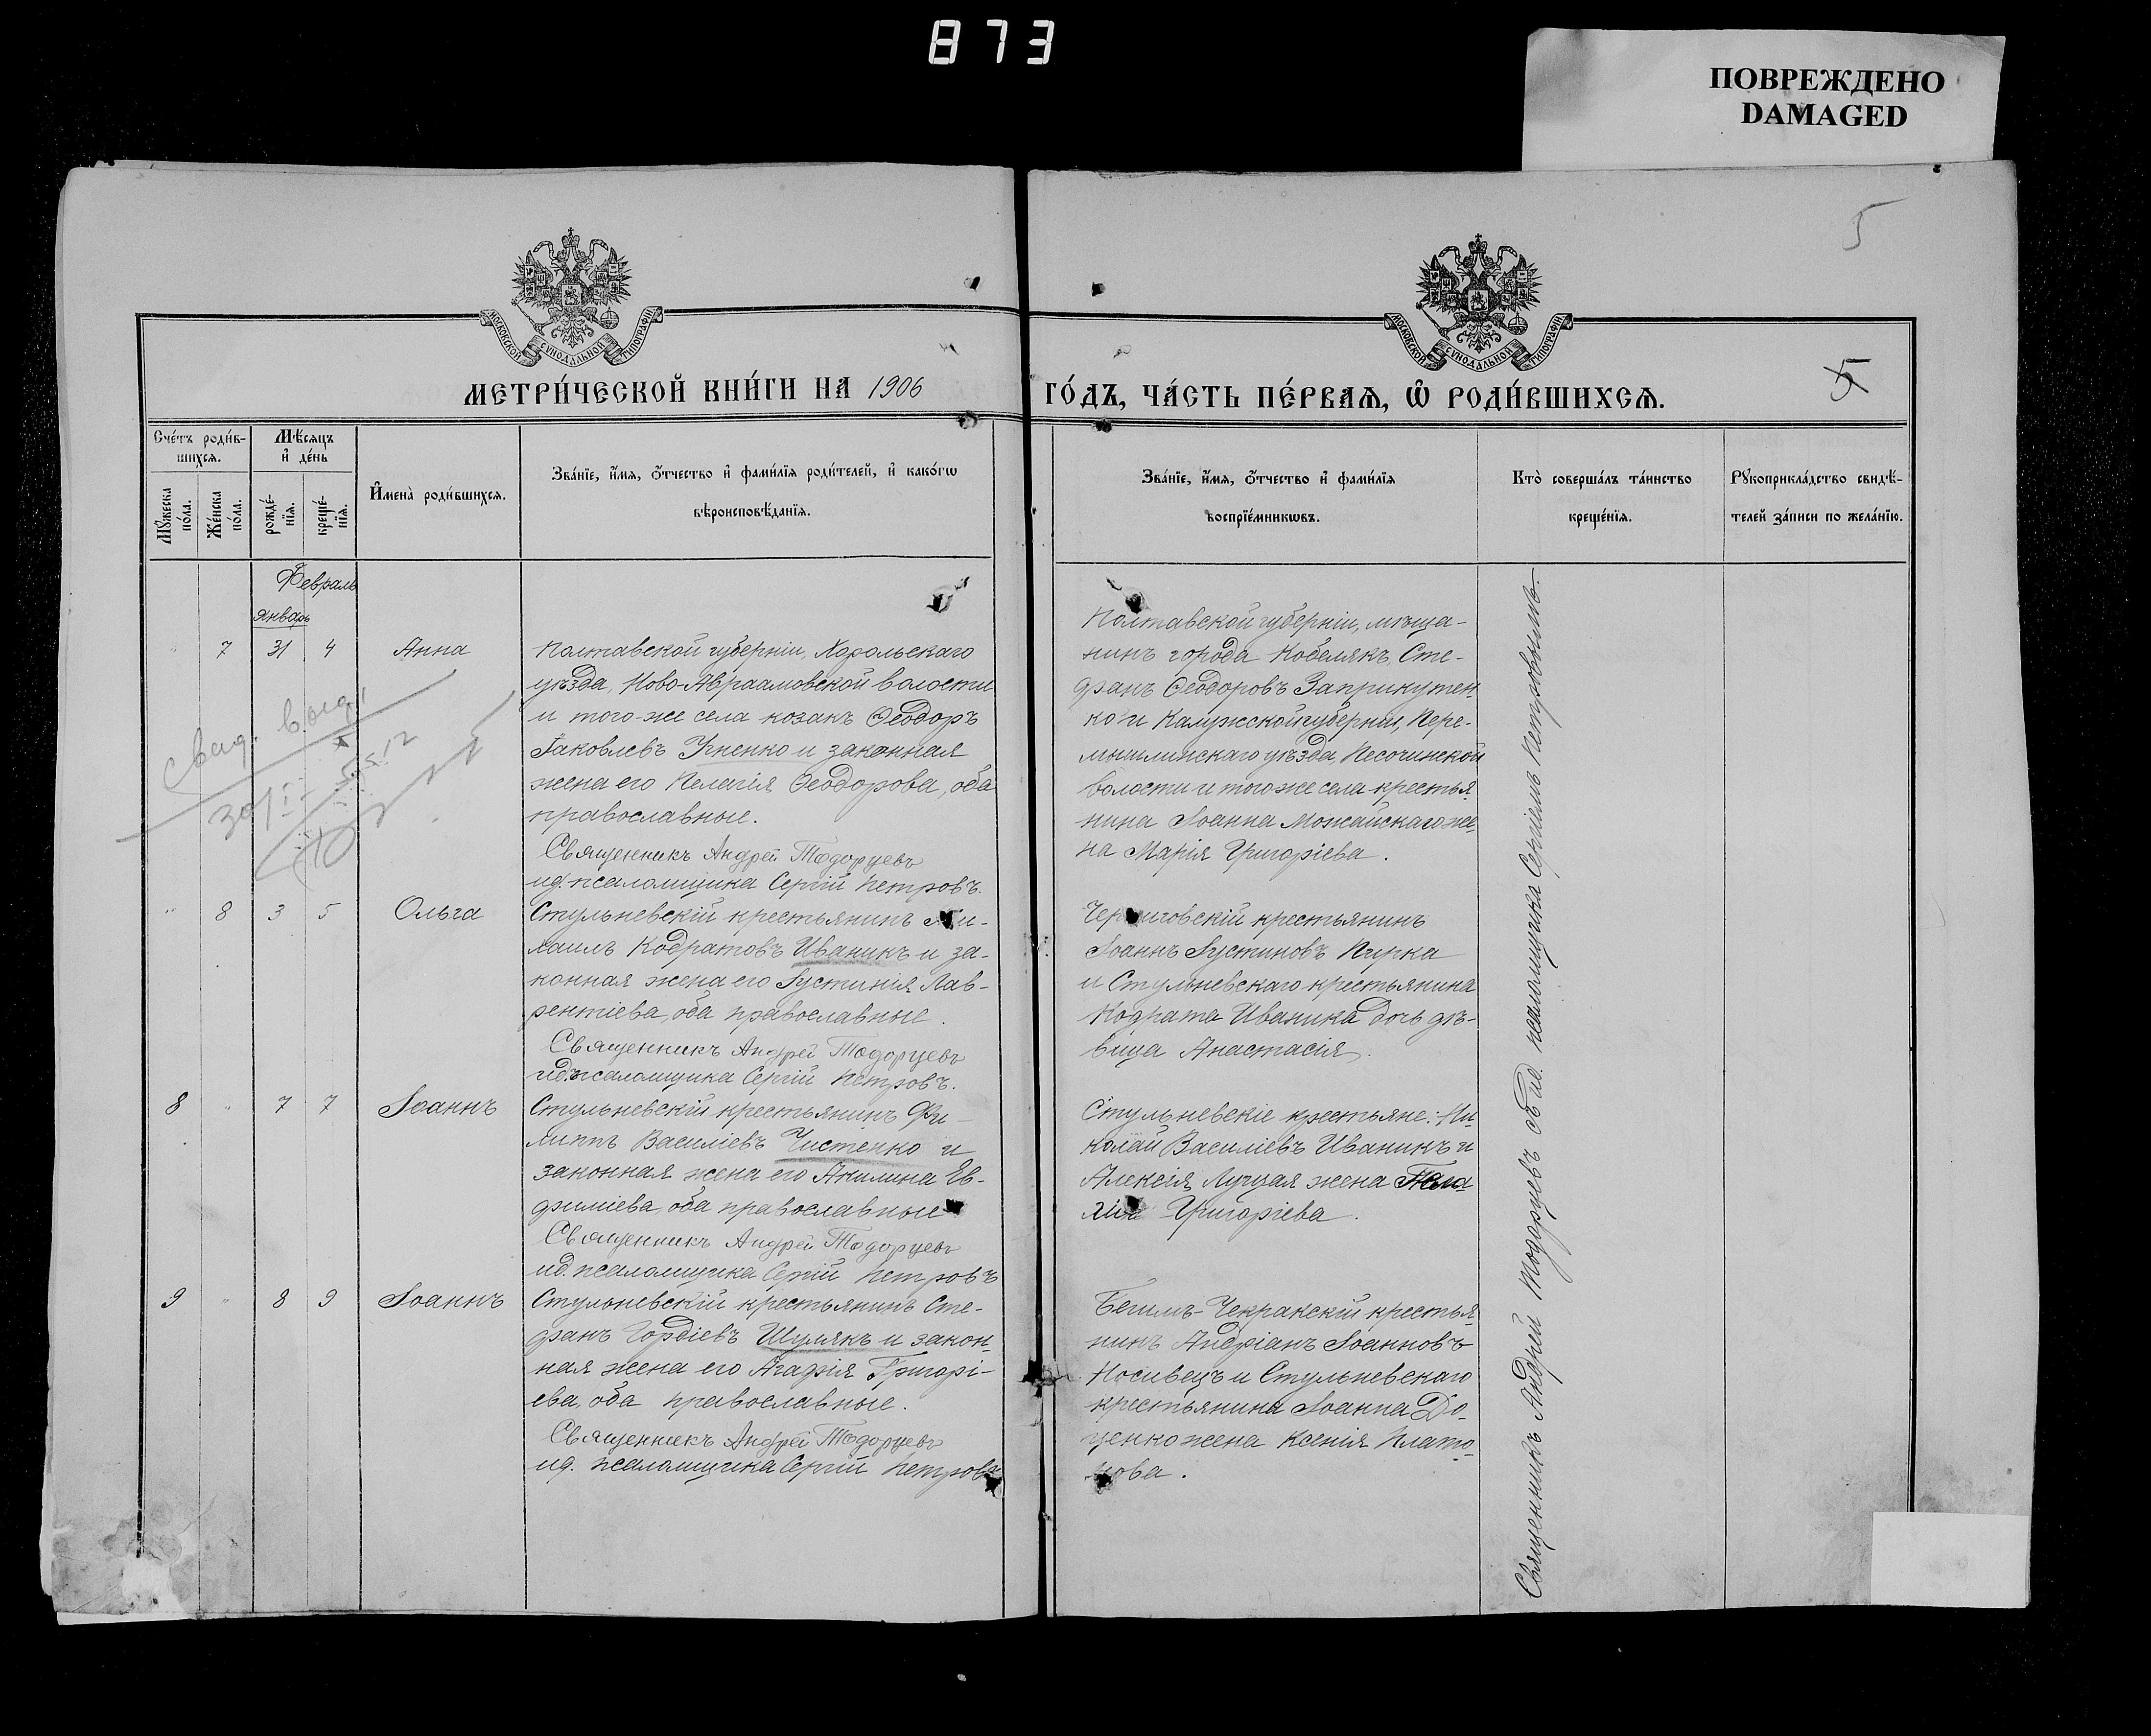 873
ПОВРЕЖДЕНО
DAMAGED
5
МОСКОВСКОЙ СѴНОДАЛЬНОЙ ТИПОГРАФІИ
МОСКОВСКОЙ СѴНОДАЛЬНОЙ ТИПОГРАФІИ
МЕТРИ́ЧЕСКОЙ КНИ́ГИ НА 1906
ГО́ДЪ, ЧА́СТЬ ПЕ́РВАѦ, Ѽ РОДИ́ВШИХСѦ.
5
Сче́тъ роди́в-
шихсѧ.
Мꙋ́жеска по́ла.
Же́нска по́ла.
Мѣ́сѧцъ
и҆ де́нь
рожде́-
нїѧ.
креще́-
нїѧ.
И҆мена̀ роди́вшихсѧ.
Зва́нїе, и҆́мѧ, ѻ҆́тчество и҆ фами́лїѧ роди́телей, и҆ како́гѡ
вѣроисповѣ́данїѧ.
Зва́нїе, и҆́мѧ, ѻ҆́тчество и҆ фами́лїѧ
воспрїе́мникѡвъ.
Кто̀ соверша́лъ та́инство
креще́нїѧ.
Рꙋкоприкла́дство свидѣ́-
телей за́писи по жела́нїю.
Февраль
Январь
" 7 31 4 Анна
Полтавской губерніи, Хорольскаго
уѣзда, Ново-Авраамовской волости
и того-же села козакъ Ѳеодоръ
Іаковлевъ Угненко и законная
жена его Пелагія Ѳеодорова, оба
православные.
Священникъ Андрей Тодорцевъ
ид. псаломщика Сергій Петровъ.
Полтавской губерніи, мѣща-
нинъ города Кобелякъ, Сте-
фанъ Ѳеодоровъ Заприкутен-
ко и Калужской губерніи, Пере-
мышлинскаго уѣзда, Песочинской
волости и того же села крестья-
нина Іоанна Можайскаго же-
на Марія Григоріева.
свид. выд.
30/I
" 8 3 5 Ольга
Стульневскій крестьянинъ Ми-
хаилъ Кодратовъ Иваникъ и за-
конная жена его Іустинія Лав-
рентіева, оба православные.
Священникъ Андрей Тодорцевъ
ид. псаломщика Сергій Петровъ.
Черниговскій крестьянинъ
Іоаннъ Іустиновъ Пирка
и Стульневскаго крестьянина
Кодрата Иваника дочь дѣ-
вица Анастасія.
8 " 7 7 Іоаннъ
Стульневскій крестьянинъ Фи-
липпъ Василіевъ Чистенко и
законная жена его Акилина Ев-
фиміева, оба православные
Священникъ Андрей Тодорцевъ
ид. псаломщика Сергій Петровъ
Стульневскіе крестьяне: Ни-
колай Василіевъ Иваникъ и
Алексія Луцая жена Пела-
гія Григоріева.
9 " 8 9 Іоаннъ
Стульневскій крестьянинъ Сте-
фанъ Гордіевъ Шулякъ и закон-
ная жена его Агафія Григорі-
ева, оба православные.
Священникъ Андрей Тодорцевъ
ид. псаломщика Сергій Петровъ
Бегимъ-Чекракскій крестья-
нинъ Андріанъ Іоанновъ
Носивецъ и Стульневскаго
крестьянина Іоанна До-
ценко жена Ксенія Плато-
нова.
Священникъ Андрей Тодорцевъ съ ид. псаломщика Сергіемъ Петровымъ.